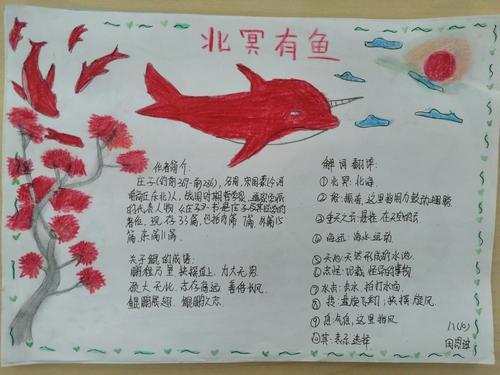 北冥有鱼
作者简介:
庄子(约前369-前286),名周,宋国蒙(今河
南商丘东北)人,战国时期哲学家,道家学派
的代表人物《庄子》一书是庄子及其后学的
著作,现存33篇,包括内篇7篇,外篇15
篇,杂篇11篇.
关于鲲的成语:
鹏程万里 扶摇直上 力大无穷
硕大无比
鲲鹏展翅 鲲鹏之志
解词翻译:
①北冥:北海.
②怒:振奋,这里指用力鼓动翅膀
③垂天之云:悬挂在天空的云
④海运:海水运动
⑤天池:天然形成的水池.
⑥志怪:记载怪异的事物
⑦水击:击水,拍打水面.
⑧抟:盘旋飞翔;扶摇:旋风.
⑨息:气息,这里指风
⑩其:表示选择.
八(10)